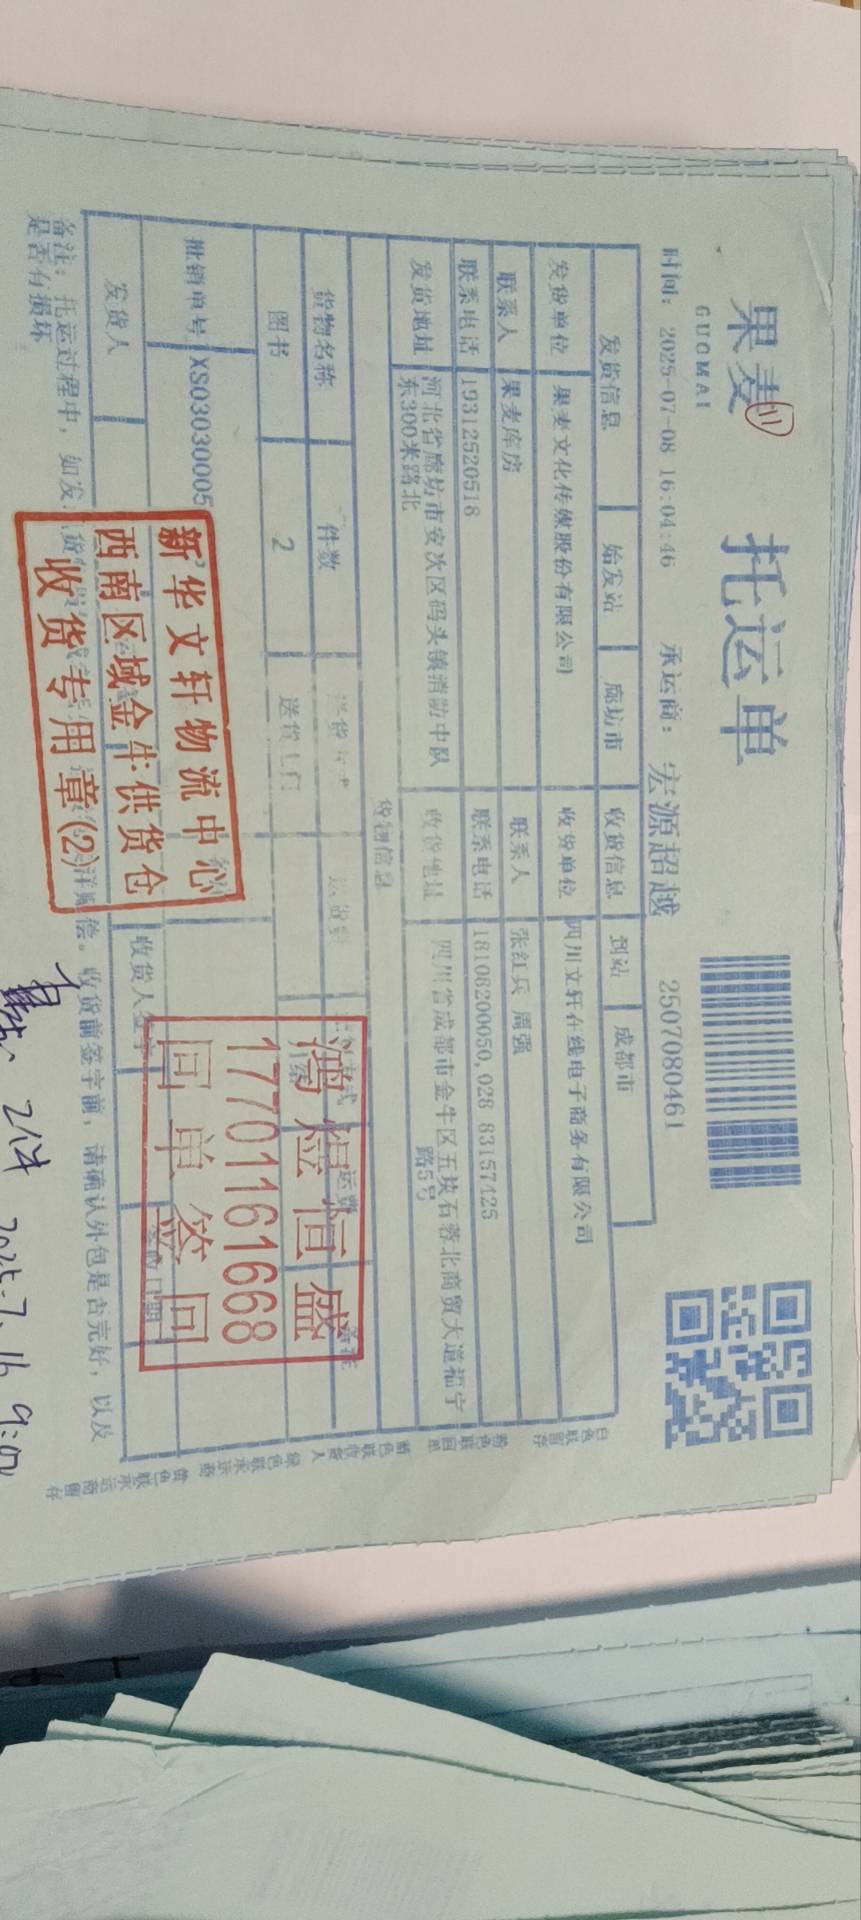 果麦
GUOMAI
托运单
时间: 2025-07-08 16:04:46 承运商: 宏源超越 2507080461
发货信息 始发站 廊坊市 收货信息 到站 成都市
发货单位 果麦文化传媒股份有限公司 收货单位 四川文轩在线电子商务有限公司
联系人 果麦库房 联系人 张红兵 周强
联系电话 19312520518 联系电话 18108200050,028 83157425
发货地址 河北省廊坊市安次区码头镇消防中队东300米路北 收货地址 四川省成都市金牛区五块石蓉北商贸大道福宁路5号
货物信息
货物名称 件数 送货方式 运费
图书 2 送货上门
批销单号 XS03030005
发货人 收货人签字
备注: 托运过程中, 如发
偿。收货前签字前, 请确认外包是否完好, 以及
是否有损坏
新华文轩物流中心
西南区域金牛供货仓
收货专用章(2)
鸿煜恒盛
17701161668
回单签回
2件 2025.7.16 9:00
白色联留存 粉色联回单 蓝色联收货人 绿色联承运商 黄色联承运商留存